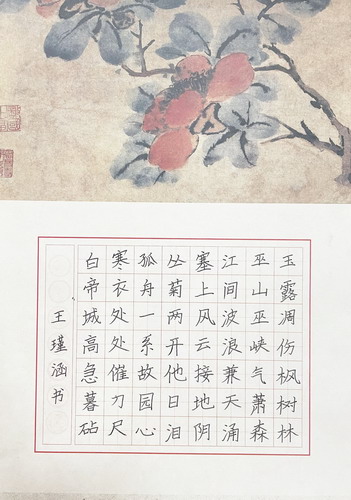 玉露凋伤枫树林
巫山巫峡气萧森
江间波浪兼天涌
塞上风云接地阴
丛菊两开他日泪
孤舟一系故园心
寒衣处处催刀尺
白帝城高急暮砧
王瑾涵书